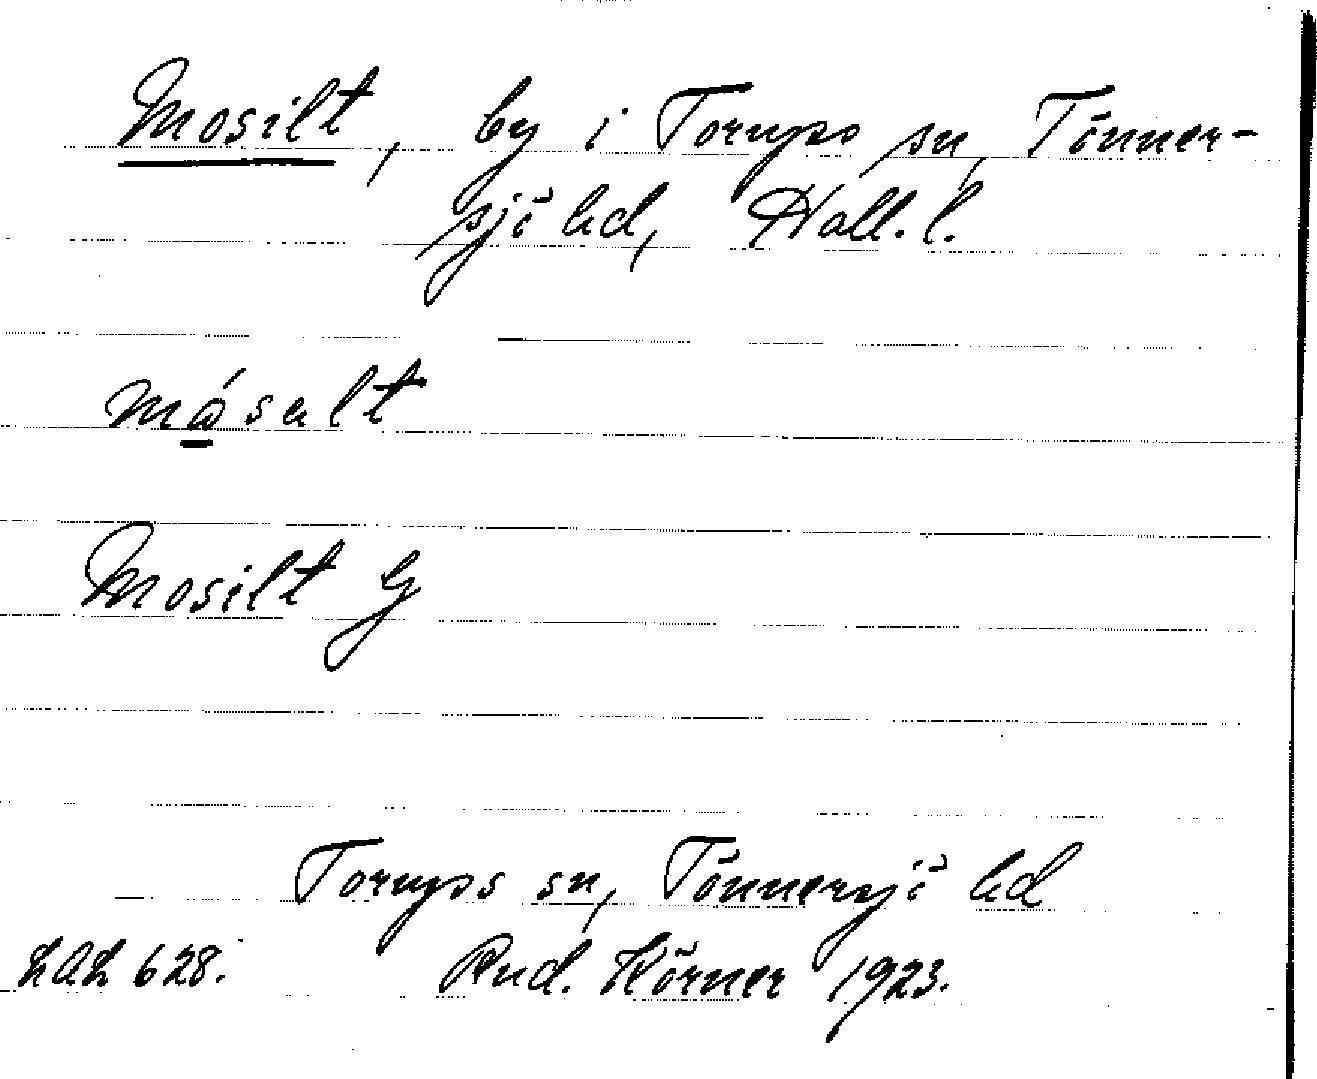 Mosilt, by i Torups sn, Tönner-
sjö hd, Hall. l.
Mosilt G
Torups sn, Tönnersjö hd
LAL 628. Rud. Körner 1923.